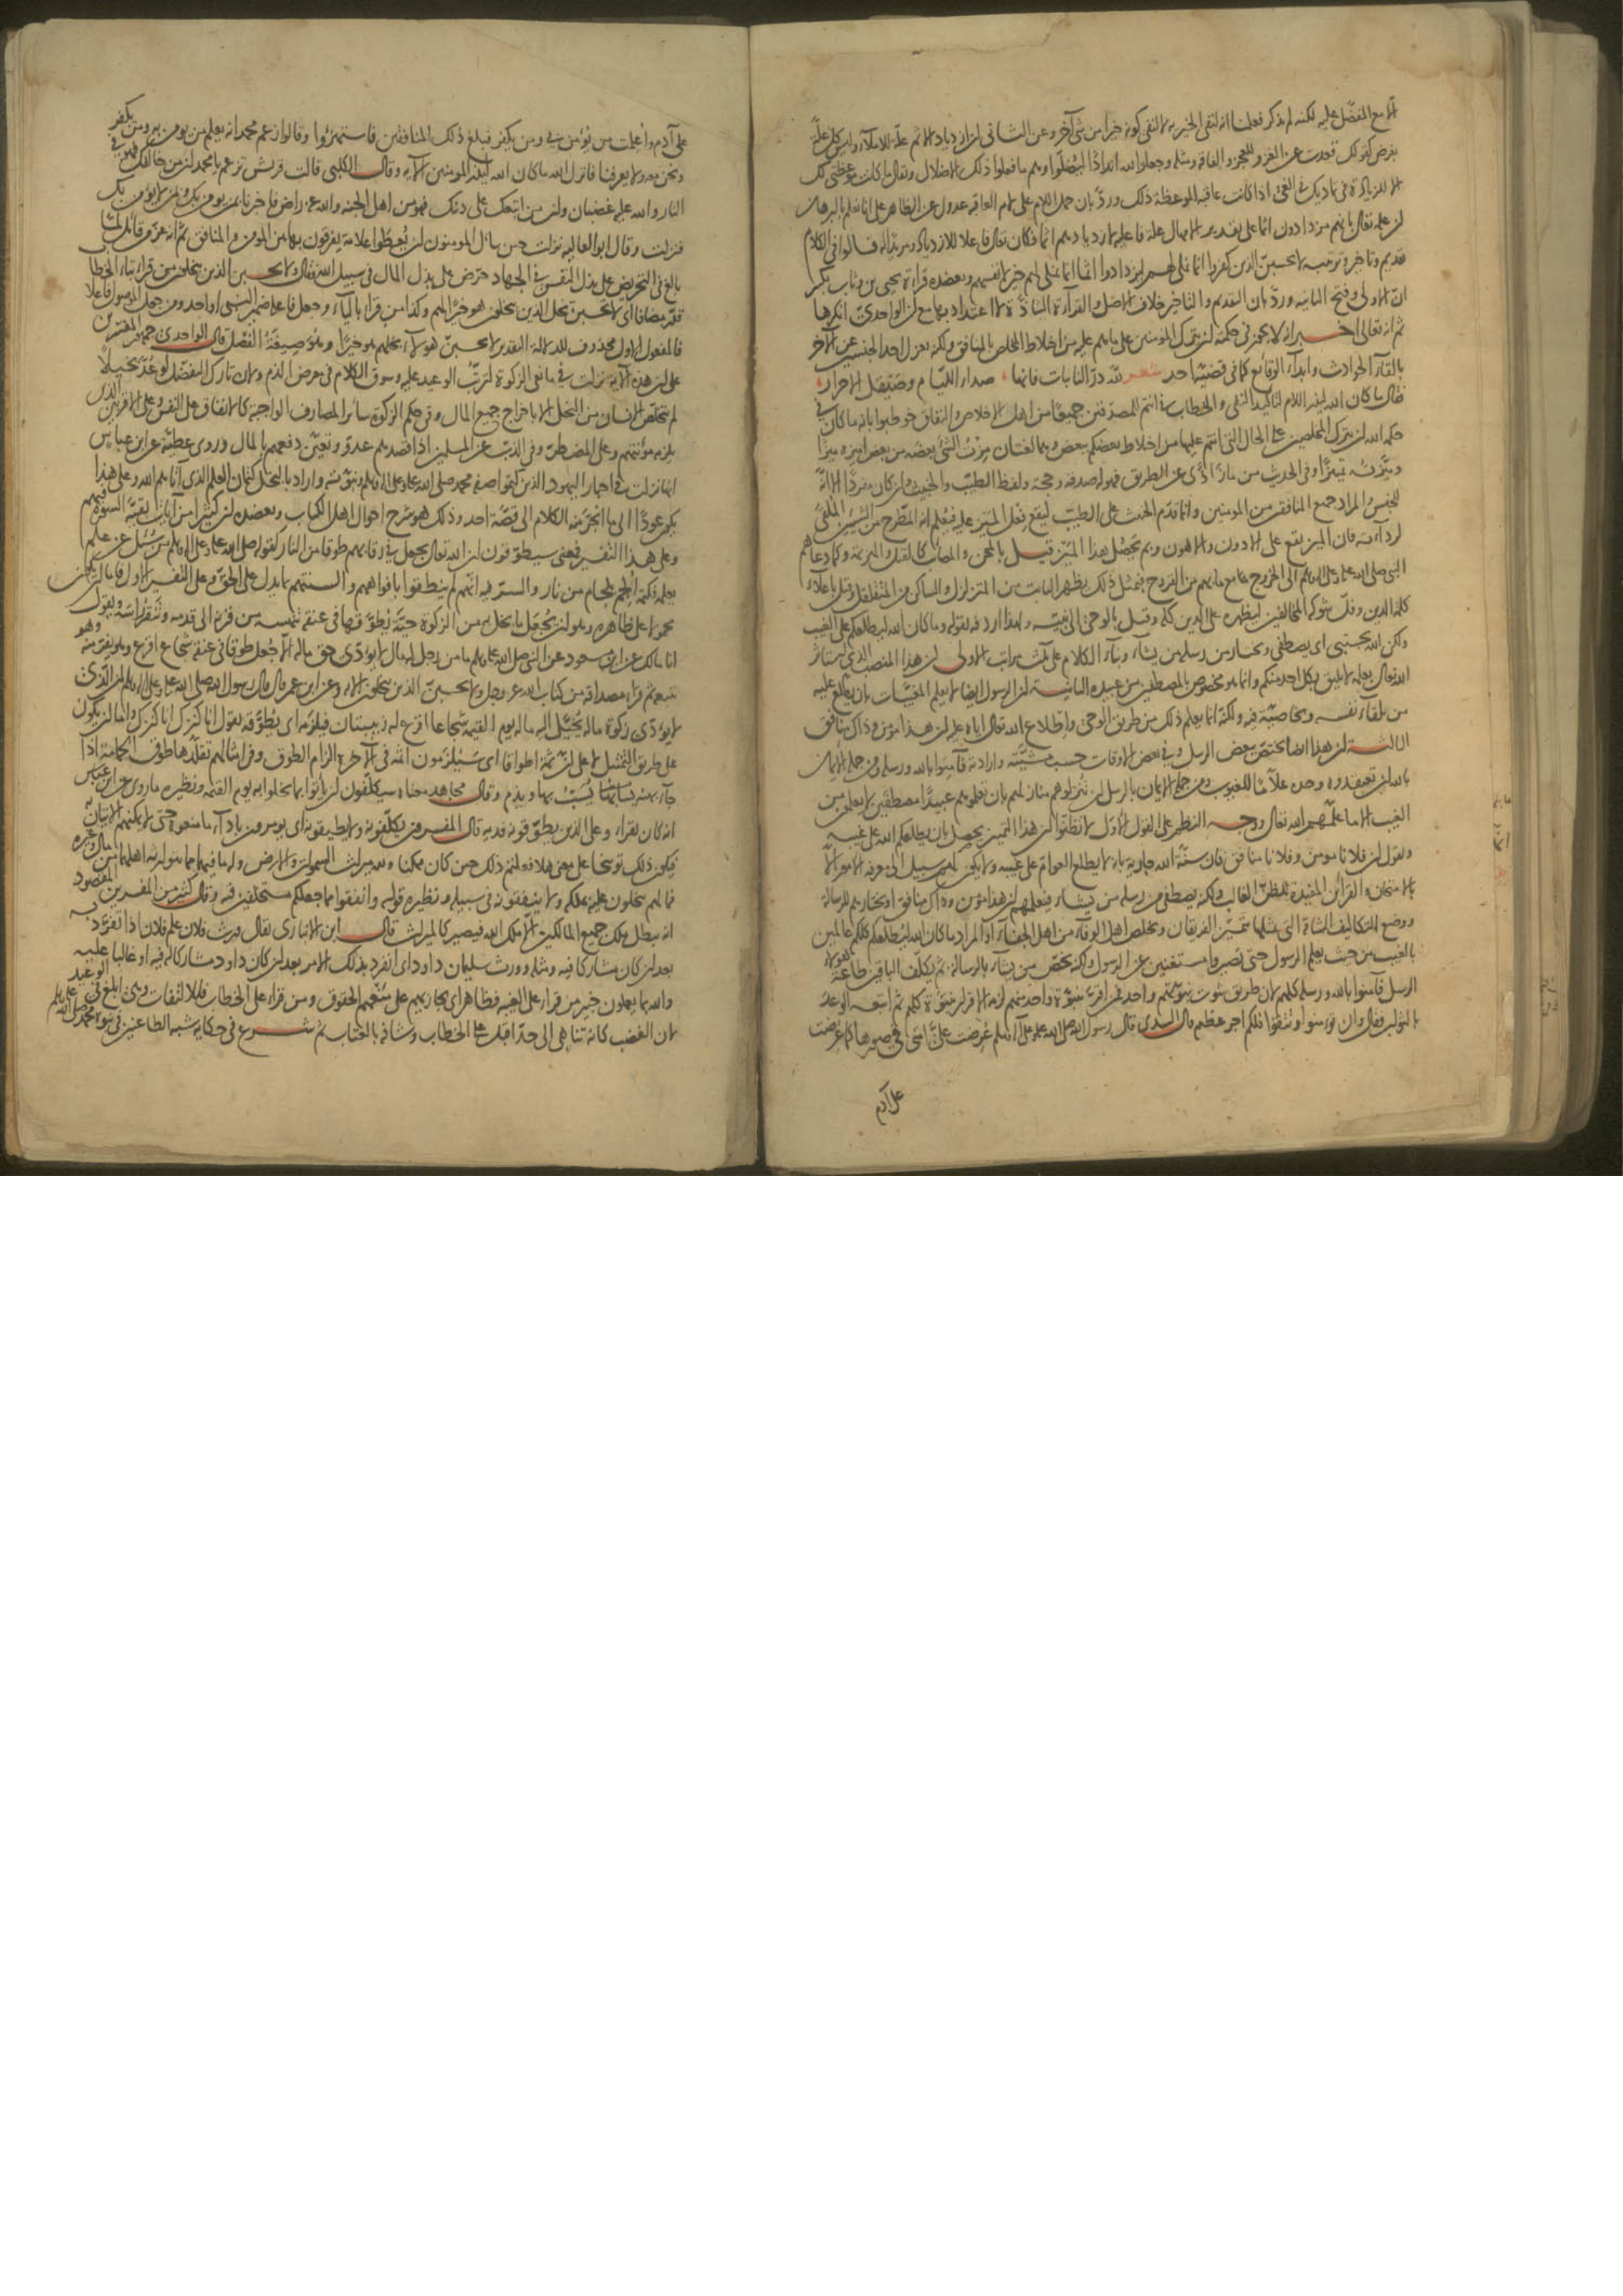 الا مع المفضل عليه لكنه لم يذكر فعلمنا انه لنفى الخيرية لا لنفى كونه خيرا من شى آخر وعن الثانى لن ازدياد الاثم علة للاملاء وليس كل علة
بغرض كقولك قعدت عن الغزو للعجز والفاقة ومثله وجعلوا لله اندادا ليضلوا وهم ما فعلوا ذلك للاضلال ويقال ما كانت موعظتى لك
الا للزيادة فى تماديك فى الغى اذا كانت عاقبة الموعظة ذلك ورد بان حمل اللام على لام العاقبة عدول عن الظاهر على انا نعلم بالبرهان
لن علمه تعالى بانهم مزدادون اثما على تقدير الامهال علة فاعلية لازديادهم اثما فكان تعالى فاعلا للازدياد ومريدا له قالوا فى الكلام
تقديم وتاخير وترتيبه لا يحسبن الذين كفروا انما نملى لهم ليزدادوا اثما انما نملى لهم خير لانفسهم ويعضده قراءة يحيى بن وثاب بكسر
ان الاولى وفتح الثانية ورد بان التقديم والتاخير خلاف الاصل والقراءة الشاذة لا اعتداد بها مع لن الواحدى انكرها
ثم انه تعالى اخبر انه لا يجوز فى حكمته لن يترك المومنين على ما هم عليه من اختلاط المخلص بالمنافق ولكنه يعزل احد الجنسين عن الآخر
بالقاء الحوادث وابداء الوقائع كما فى قضية احد شعر لله در النايبات فانها صداء اللئام وصيقل الاحرار
فقال ما كان الله ليذر اللام لتاكيد النفى والخطاب فى انتم للمصدقين جميعا من اهل الاخلاص والنفاق خوطبوا بانه ما كان فى
حكم الله لن يترك المخلصين على الحال التى انتم عليها من اختلاط بعضكم ببعض وهما لغتان مزت الشى بعضه من بعض اميزه ميزا
وميزته تمييزا وفى الحديث من ماز اذى عن الطريق فهو له صدقة وحجة ولفظ الطيب والخبيث ولن كان مفردا الا انه
للجنس والمراد جميع المنافقين من المومنين وانما قدم الخبيث على الطيب ليقع فعل الميز عليه فيعلم انه المطرح من الشيئين الملقى
لرداءته فان الميز يقع على الادون والاهون وبم يحصل هذا الميز قيل بالمحن والمصائب كالقتل والهزيمة وكما دعاهم
النبى صلى الله عليه وعلى اله وسلم الى الخروج مع ما بهم من القروح فبمثل ذلك يظهر الثابت من المتزلزل والساكن من المتقلقل وقيل باعلاء
كلمة الدين وفل شوكة المخالفين ليظهره على الدين كله وقيل بالوحى الى نبيه ولهذا اردفه بقوله وما كان الله ليطلعكم على الغيب
ولكن الله يجتبى اى يصطفى ويختار من رسله من يشاء وبناء الكلام على ثلث مراتب الاولى لن هذا المنصب الذى استاثر
الله تعالى بعلمه لا يليق بكل احد منكم وانما هو مخصوص بالمصطفين من عبيده الثانية لن الرسول ايضا لا يعلم المغيبات بان يطلع عليه
من تلقاء نفسه وبخاصية فيه ولكنه انما يعلم ذلك من طريق الوحى واطلاع الله تعالى اياه عليه لن هذا مومن وذاك منافق
الثالثة لن هذا ايضا يختص ببعض الرسل وفى بعض الاوقات حسب مشيته وارادته فآمنوا بالله ورسله ومن جملة الايمان
بالله لن تعتقدوه وحده علاما للغيوب ومن جملة الايمان بالرسل لن تنزلوهم منازلهم بان تعلموهم عبيدا مصطفين لا يعلمون من
الغيب الا ما علمهم الله تعالى ووجه النظم على القول الاول لا تظنوا لن هذا التمييز يحصل بان يطلعكم الله على غيبه
ويقول لن فلانا مومن وفلانا منافق فان سنة الله جارية بانه لا يطلع العوام على غيبه ولا يكون لهم سبيل الى معرفة الامور الا
بالامتحان والقرائن المفيدة للظن الغالب ولكنه يصطفى من رسله من يشاء فيعلمهم لن هذا مومن وذاك منافق او يختارهم للرسالة
ووضع التكاليف الشاقة التى بمثلها يتميز الفريقان ويخلص اهل الوفاء من اهل الجفاء او المراد ما كان الله ليطلعكم كلكم عالمين
بالغيب من حيث يعلم الرسول حتى تصيروا مستغنين عن الرسول ولكنه يخص من يشاء بالرسالة ثم يكلف الباقين طاعة هولاء
الرسل فآمنوا بالله ورسله كلهم لان طريق ثبوت نبوتهم واحد فمن اقر بنبوة واحد منهم لزمه الاقرار بنبوة كلهم ثم اتبعه الوعد
بالثواب فقال وان تؤمنوا وتتقوا فلكم اجر عظيم قال السدى قال رسول الله صلى الله عليه وعلى آله وسلم عرضت على امتى فى صورها كما عرضت
على آدم
على آدم واعلمت من يؤمن بى ومن يكفر فبلغ ذلك المنافقين فاستهزؤا وقالوا زعم محمد انه يعلم من يومن به ومن يكفر
ونحن معه ولا يعرفنا فانزل الله ما كان الله ليذر المومنين الآية وقال الكلبى قالت قريش تزعم يا محمد لن من خالفك فهو فى
النار والله عليه غضبان ولن من اتبعك على دينك فهو من اهل الجنة والله عنه راض فاخبرنا بمن يومن بك ومن لا يومن بك
فنزلت وقال ابو العالية نزلت حين سال المومنون لن يعطوا علامة يفرقون بها بين المومن والمنافق ثم انه عز من قائل لما
بالغ فى التحريض على بذل النفس فى الجهاد حرض على بذل المال فى سبيل الله فقال ولا يحسبن الذين يبخلون من قرا بتاء الخطاب
قدر مضافا اى لا تحسبن بخل الذين يبخلون هو خيرا لهم وكذا من قرا بالياء وجعل فاعله ضمير النبى او احد ومن جعل الموصول فاعلا
فالمفعول الاول محذوف للدلالة التقدير لا يحسبن هولاء بخلهم هو خيرا وهو صيغة الفصل قال الواحدى جمهور المفسرين
على لن هذه الآية نزلت فى مانعى الزكوة لترتب الوعيد عليه وسوق الكلام فى معرض الذم ولان تارك التفضل لو عد بخيلا
لم يتخلص الانسان من البخل الا باخراج جميع المال وفى حكم الزكوة سائر المصارف الواجبة كالانفاق على النفس وعلى الاقربين الذين
يلزمه مؤنتهم وعلى المضطر وفى الذب عن المسلمين اذا قصدهم عدو وتعين دفعهم بالمال وروى عطية عن ابن عباس
انها نزلت فى احبار اليهود الذين كتموا صفة محمد صلى الله عليه وعلى اله وسلم ونبوته واراد بالبخل كتمان العلم الذى آتاهم الله وعلى هذا
يكون عودا الى ما انجر منه الكلام الى قصة احد وذلك هو شرح احوال اهل الكتاب ويعضده لن كثيرا من آيات بقية السورة فيهم
وعلى هذا التفسير فمعنى سيطوقون لن الله تعالى يجعل فى رقابهم طوقا من النار كقوله صلى الله عليه وعلى اله وسلم من سئل عن علم
يعلمه فكتمه الجم بلجام من نار والسر فيه انهم لم ينطقوا بافواههم والسنتهم بما يدل على الحق وعلى التفسير الاول فاما لن يكون
محمولا على ظاهره وهو لن يجعل ما بخل به من الزكوة حية يطوق بها فى عنقه تنهشه من قرنه الى قدمه وتنقر راسه ويقول
انا مالك عن ابن مسعود عن النبى صلى الله عليه وسلم ما من رجل له مال لا يؤدى حق ماله الا جعل طوقا فى عنقه شجاع اقرع وهو يفر منه وهو
يتبعه ثم قرا مصداقه من كتاب الله عز وجل ولا يحسبن الذين يبخلون الآية وعن ابن عمر قال قال رسول الله صلى الله عليه وعلى اله وسلم لن الذى
لا يؤدى زكوة ماله يخيل اليه ماله يوم القيمة شجاعا اقرع له زبيبتان فيلزمه اى يطوقه يقول انا كنزك انا كنزك واما لن يكون
على طريق التمثيل لا على لن ثمة اطواقا اى سيلزمون اثمه فى الآخرة الزام الطوق وفى امثالهم تقلدها طوق الحمامة اذا
جاء بهنة يسب بها ويذم وقال مجاهد معناه سيكلفون لن ياتوا بما بخلوا به يوم القيمة ونظيره ما روى عن ابن عباس
انه كان يقرا وعلى الذين يطوقونه فدية قال المفسرون يكلفونه ولا يطيقونه اى يومرون باداء ما منعوه حتى لا يمكنهم الاتيان به
فيكون ذلك توبيخا على معنى هلا فعلتم ذلك حين كان ممكنا ولله ميراث السموات والارض وله ما فيهما مما يتوارثه اهلهما من مال وغيره
فما لهم يبخلون عليه بملكه ولا ينفقونه فى سبيله ونظيره قوله وانفقوا مما جعلكم مستخلفين فيه وقال كثير من المفسرين المقصود
انه يبطل ملك جميع المالكين الا ملك الله فيصير كالميراث قال ابن الانبارى يقال ورث فلان علم فلان اذا تفرد به
بعد لن كان مشاركا فيه ومثله وورث سليمان داود اى انفرد بذلك الامر بعد لن كان داود مشاركا له فيه او غالبا عليه
والله بما يعملون خبير من قرا على الغيبة فظاهر اى يجازيهم على منعهم الحقوق ومن قرا على الخطاب فللالتفات وهى ابلغ فى الوعيد
لان الغضب كانه تناهى الى حد اقبل على الخطاب وشافه بالعتاب ثم شرع فى حكاية شبه الطاعنين فى نبوة محمد صلى الله عليه وسلم